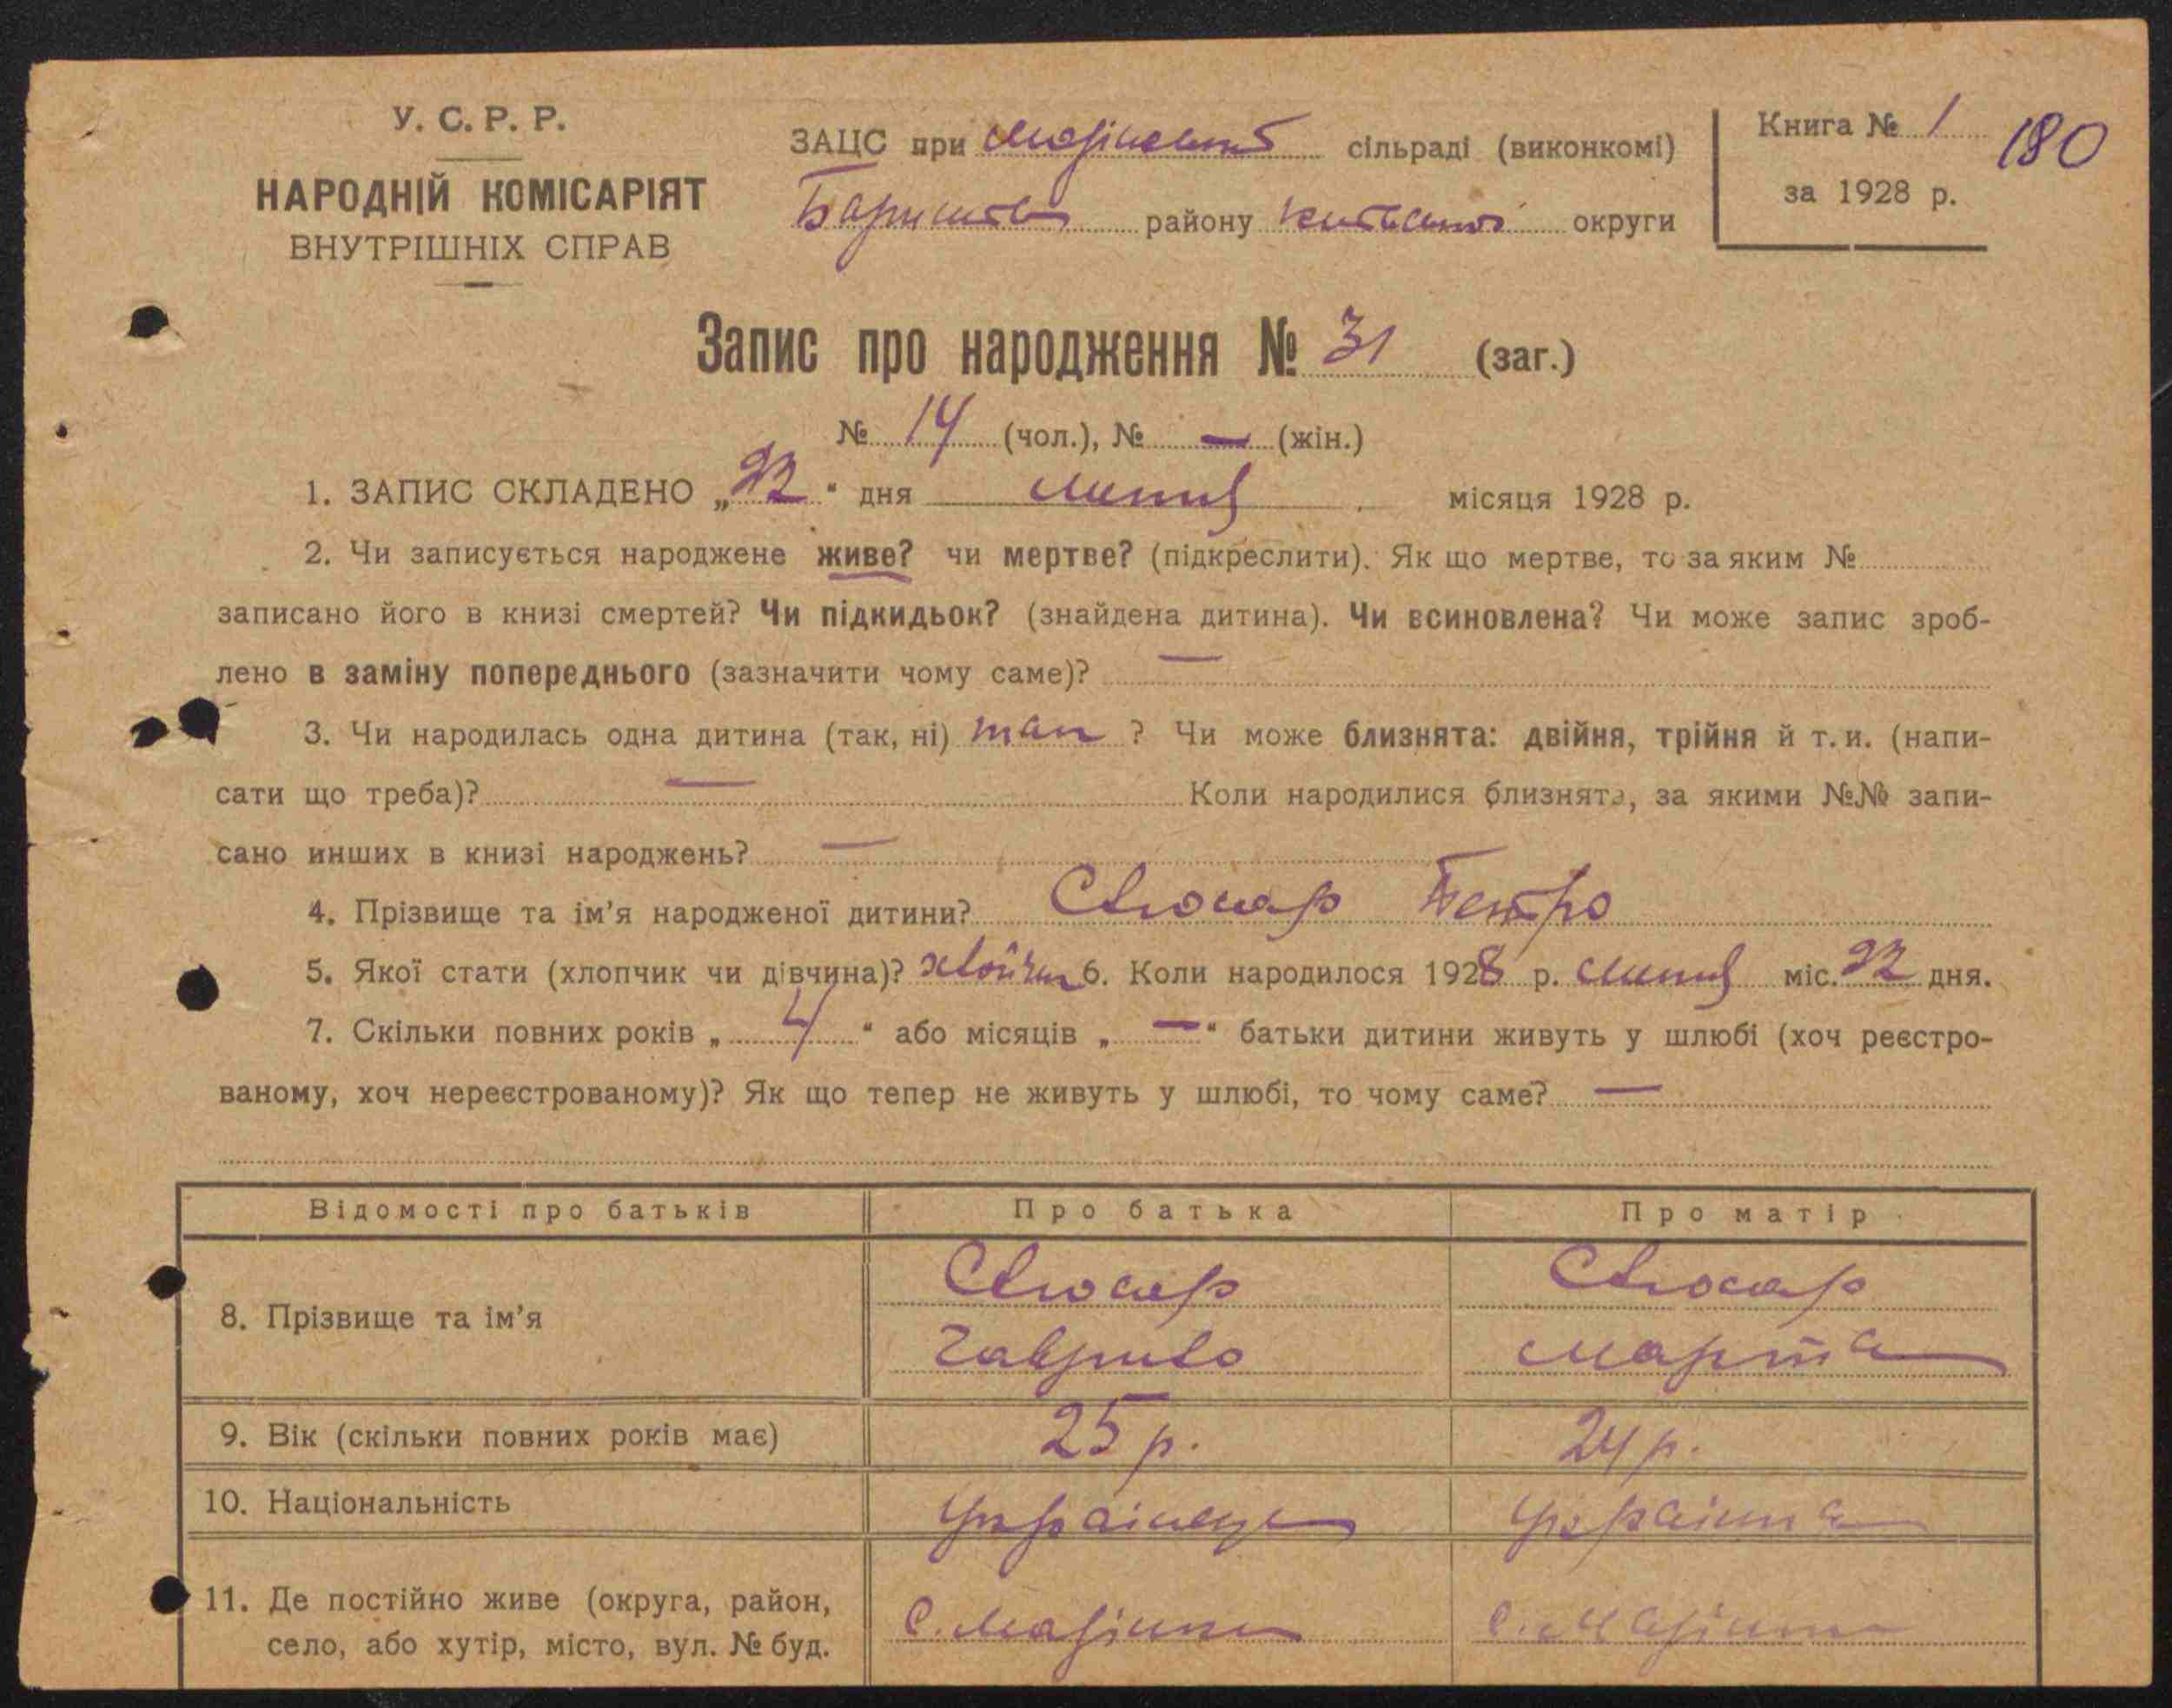 У. С. Р. Р.
НАРОДНІЙ КОМІСАРІЯТ
ВНУТРІШНІХ СПРАВ
ЗАЦС при сільраді (виконкомі)
району округи
Книга № 1
180
за 1928 р.
Запис про народження № 31 (заг.)
№ 14 (чол.), № — (жін.)
1. ЗАПИС СКЛАДЕНО „22“ дня липня місяця 1928 р.
2. Чи записується народжене живе? чи мертве? (підкреслити). Як що мертве, то за яким №
записано його в книзі смертей? Чи підкидьок? (знайдена дитина). Чи всиновлена? Чи може запис зроб-
лено в заміну попереднього (зазначити чому саме)? —
3. Чи народилась одна дитина (так, ні) так ? Чи може близнята: двійня, трійня й т. и. (напи-
сати що треба)? — Коли народилися близнята, за якими №№ запи-
сано инших в книзі народжень? —
4. Прізвище та ім'я народженої дитини? Слюсар Петро
5. Якої стати (хлопчик чи дівчина)? 6. Коли народилося 1928 р. липня міс. 22 дня.
7. Скільки повних років „ 4 “ або місяців „ — “ батьки дитини живуть у шлюбі (хоч реєстро-
ваному, хоч нереєстрованому)? Як що тепер не живуть у шлюбі, то чому саме? —
Відомості про батьків Про батька Про матір
8. Прізвище та ім'я
Слюсар Слюсар
Гаврило Марта
9. Вік (скільки повних років має) 25 р. 24 р.
10. Національність українець українка
11. Де постійно живе (округа, район,
село, або хутір, місто, вул. № буд.
с. с.